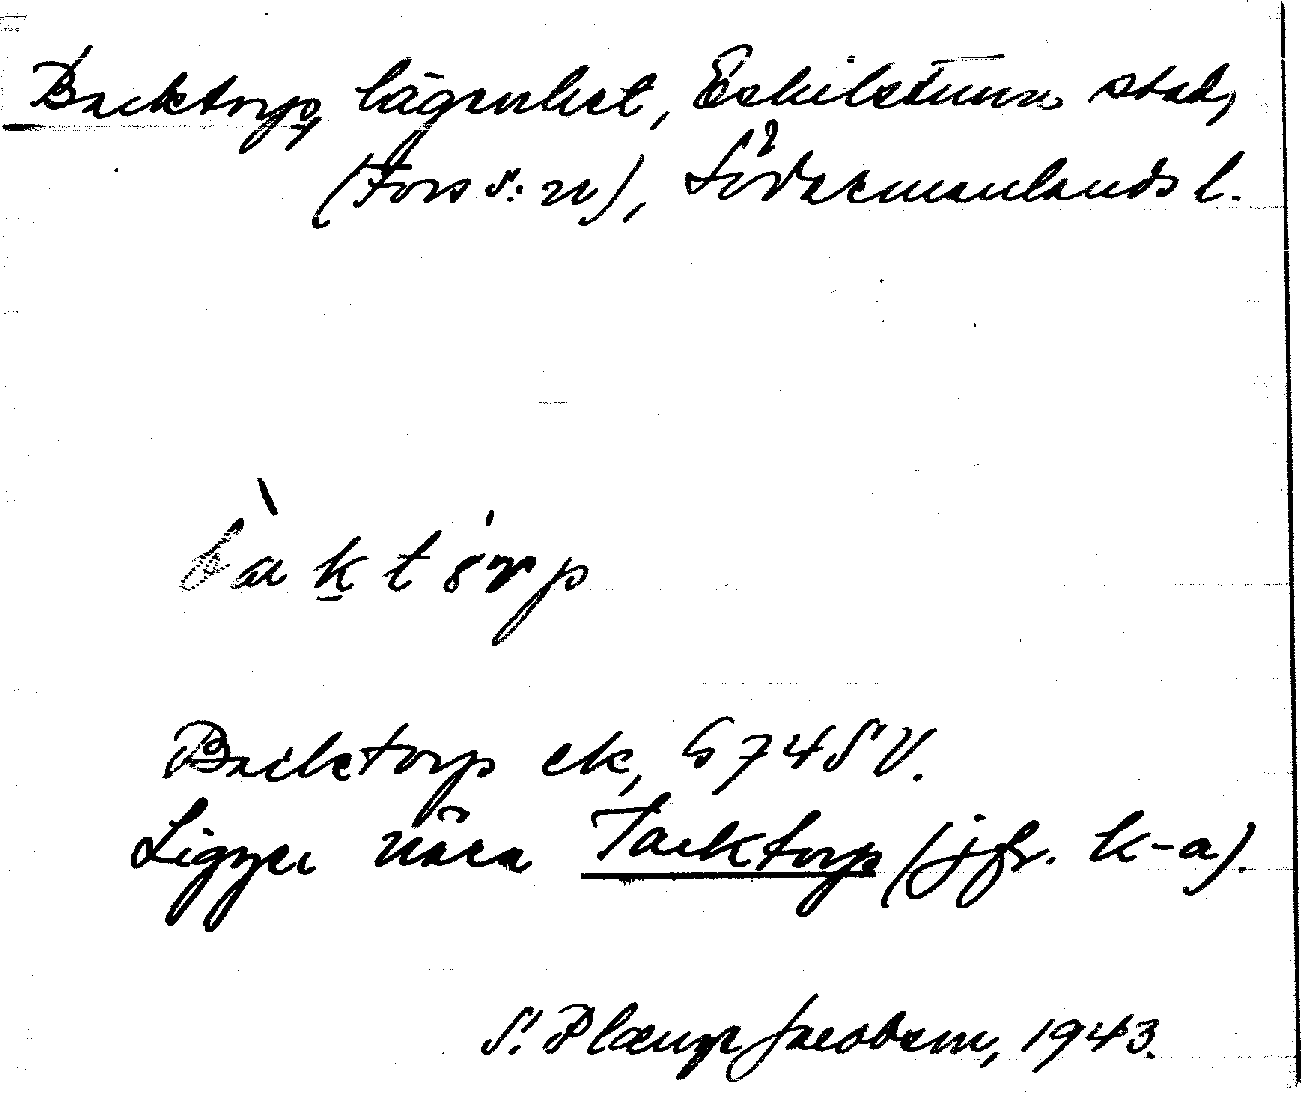 Backtorp, lägenhet, Eskilstuna stad,
(Fors s:n), Södermanlands l.
bàktórp
Backtorp ek, G 74 SV.
Ligger nära Tacktorp (jfr. k-a).
S. Plæng Jacobsen, 1943.